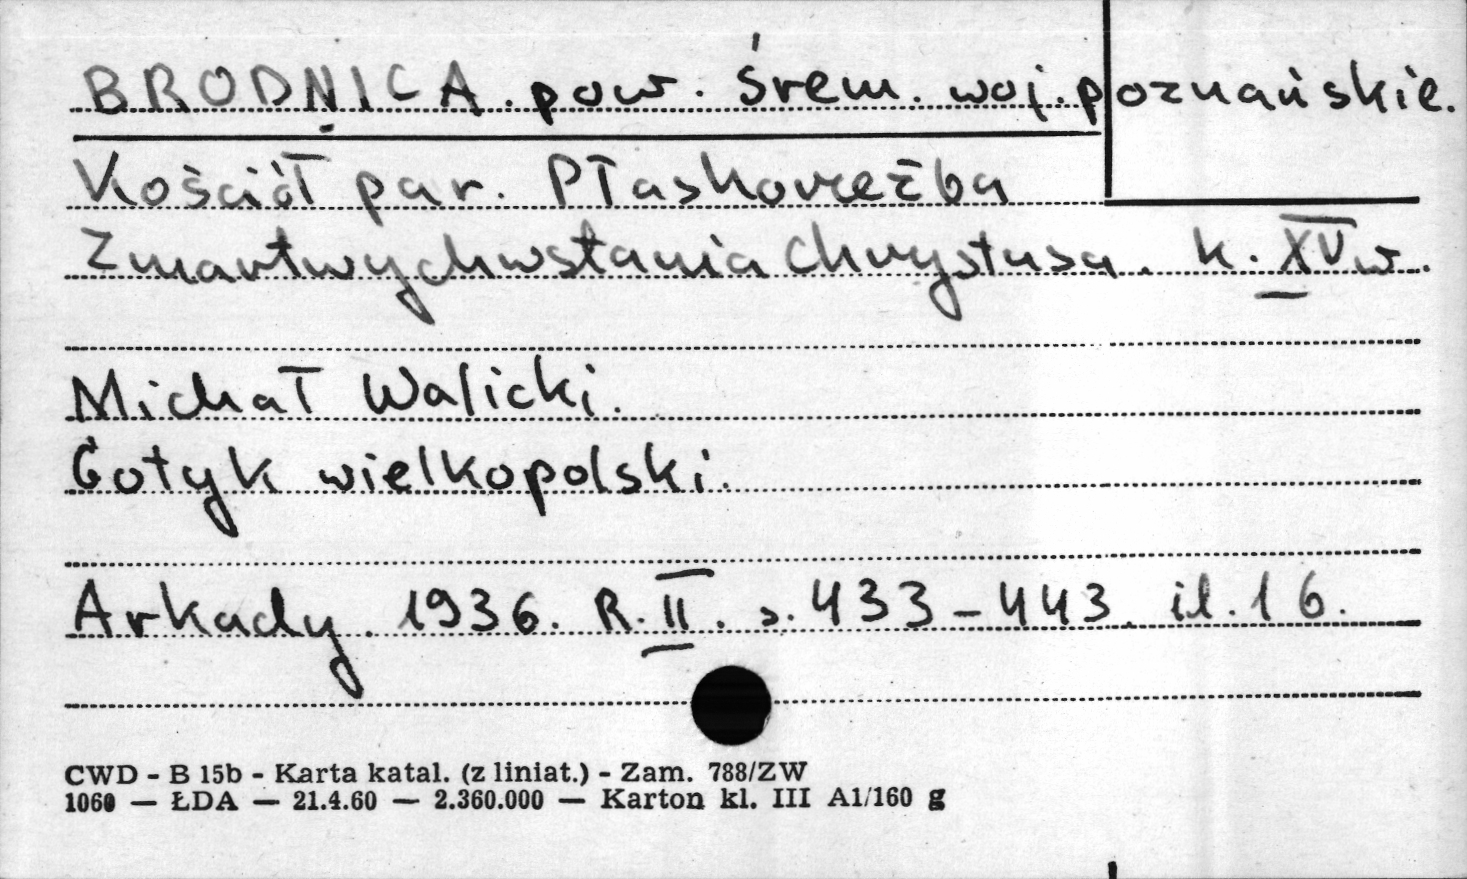 BRODNICA. pow. Śrem. woj. poznańskie.
Kościół par. Płaskorzeźba
Zmartwychwstania Chrystusa. k. XV w.
Michał Walicki.
Gotyk wielkopolski.
Arkady. 1936. R. II. s. 433-443. il. 16.
CWD - B 15b - Karta katal. (z liniat.) - Zam. 788/ZW
1060 — ŁDA — 21.4.60 — 2.360.000 — Karton kl. III A1/160 g